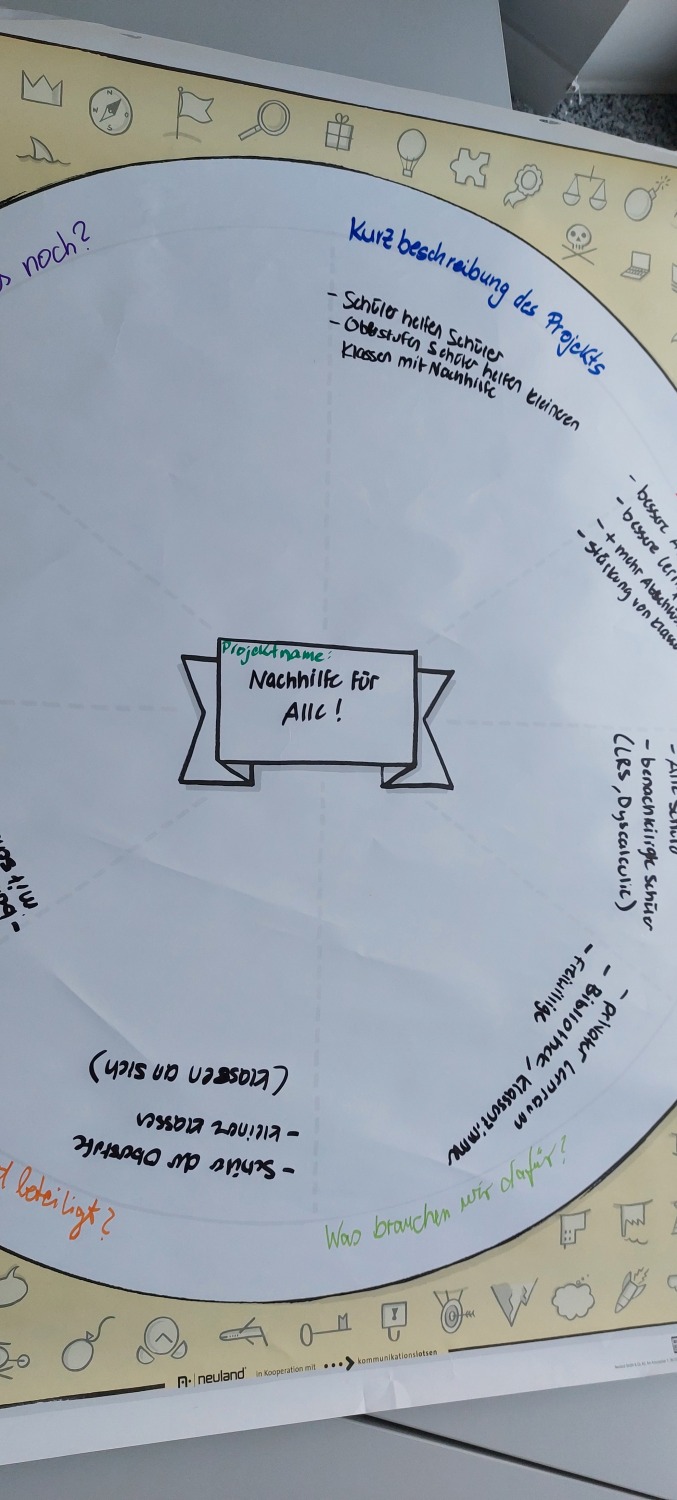 noch?
Kurzbeschreibung des Projekts
- Schüler helfen Schüler
- Obestufen Schüler helfen kleineren
Klassen mit Nachhilfe
- bessere
- bessere
- + mehr
- Stärkung von
Projektname:
Nachhilfe Für
Alle!
- benachteiligte Schüler
(LRS, Dyscalculie)
- privater Lernraum
- Bibliothek, Klassenzimmer
- freiwillige
Was brauchen wir dafür?
- Schüler der Oberstufe
- kleinere Klassen
(Klassen an sich)
beteiligt?
neuland
in Kooperation mit
kommunikationslotsen